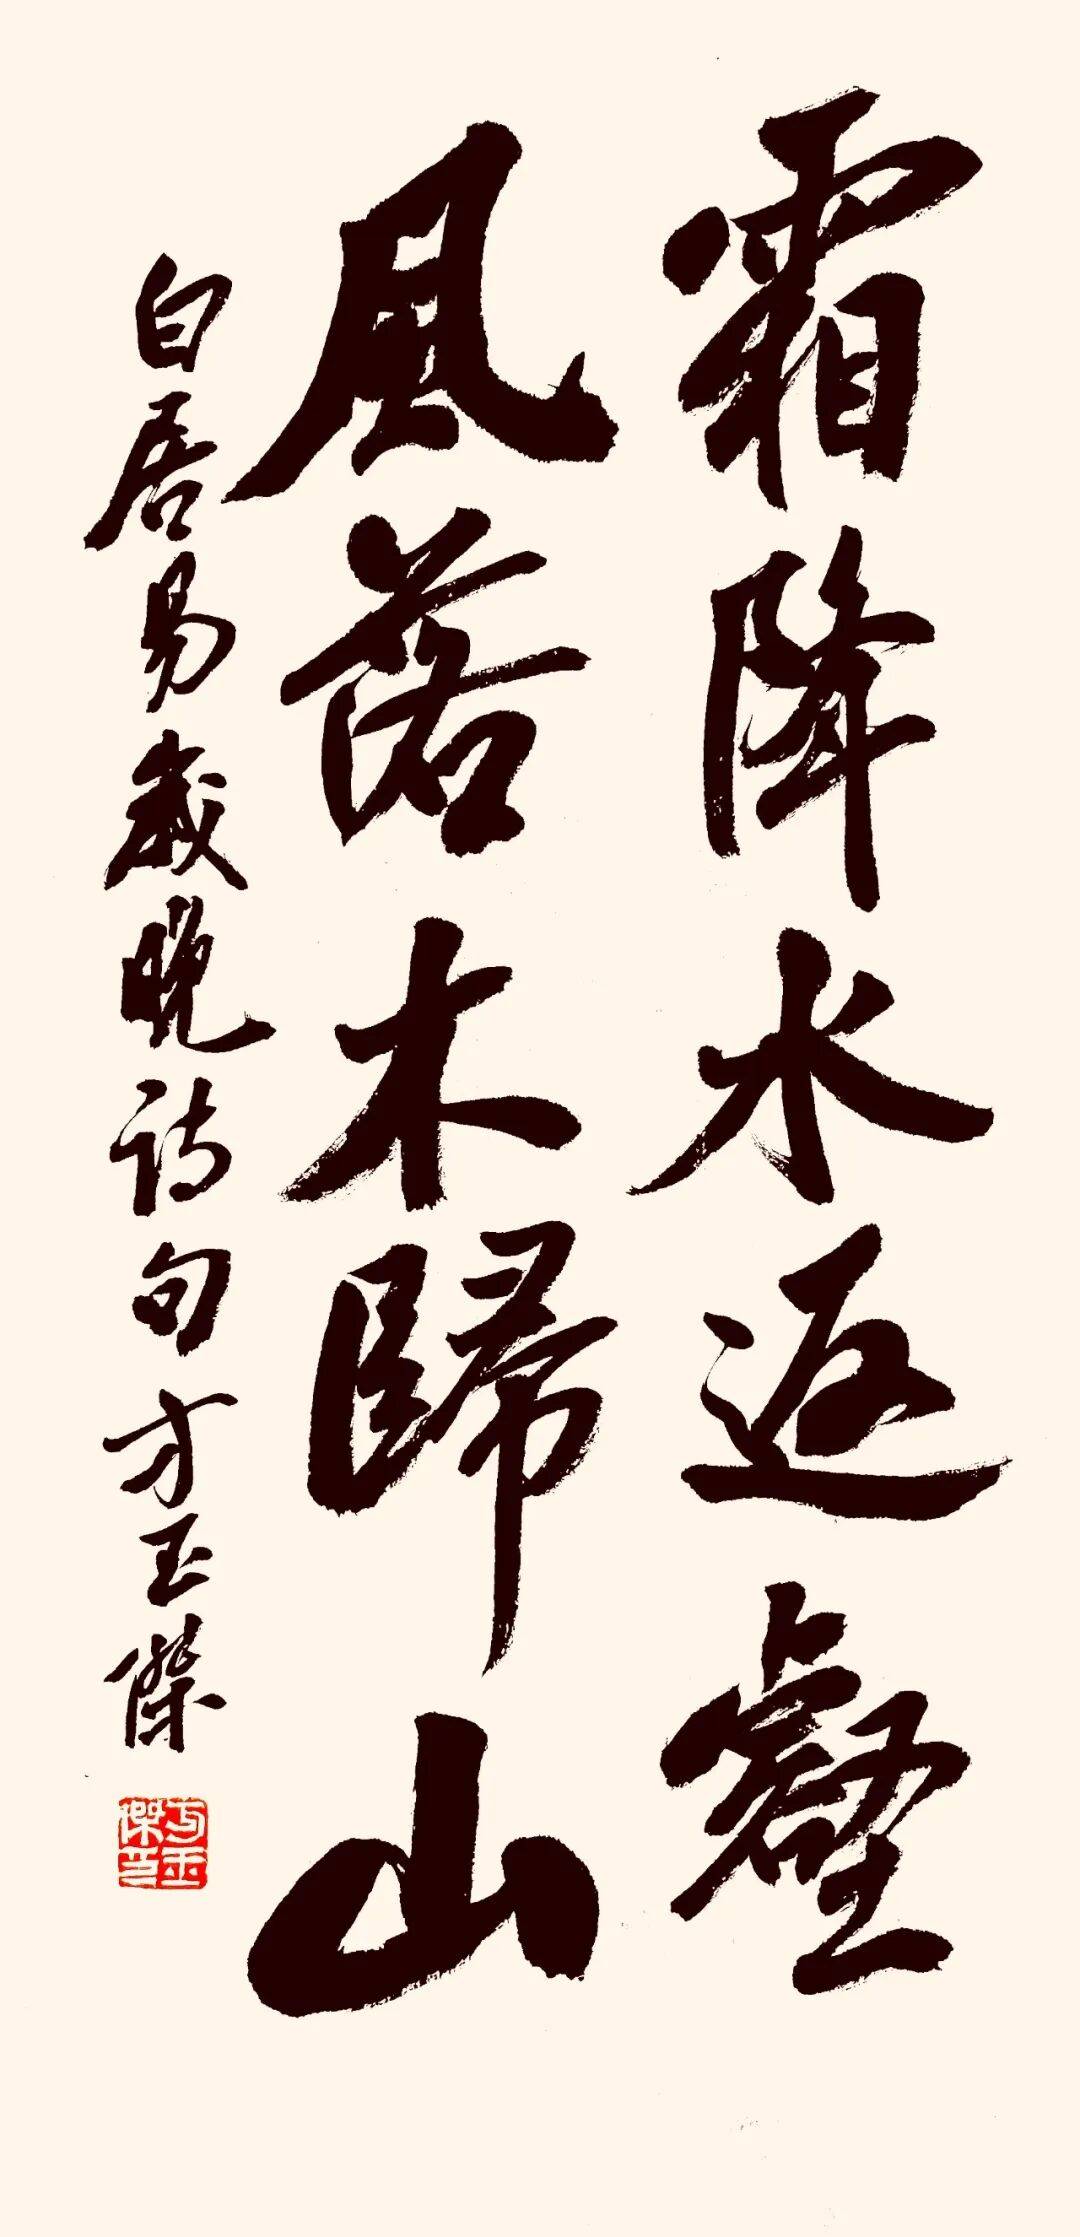 霜降水返壑
風落木歸山
白居易歲晚诗句方玉傑
方玉傑印